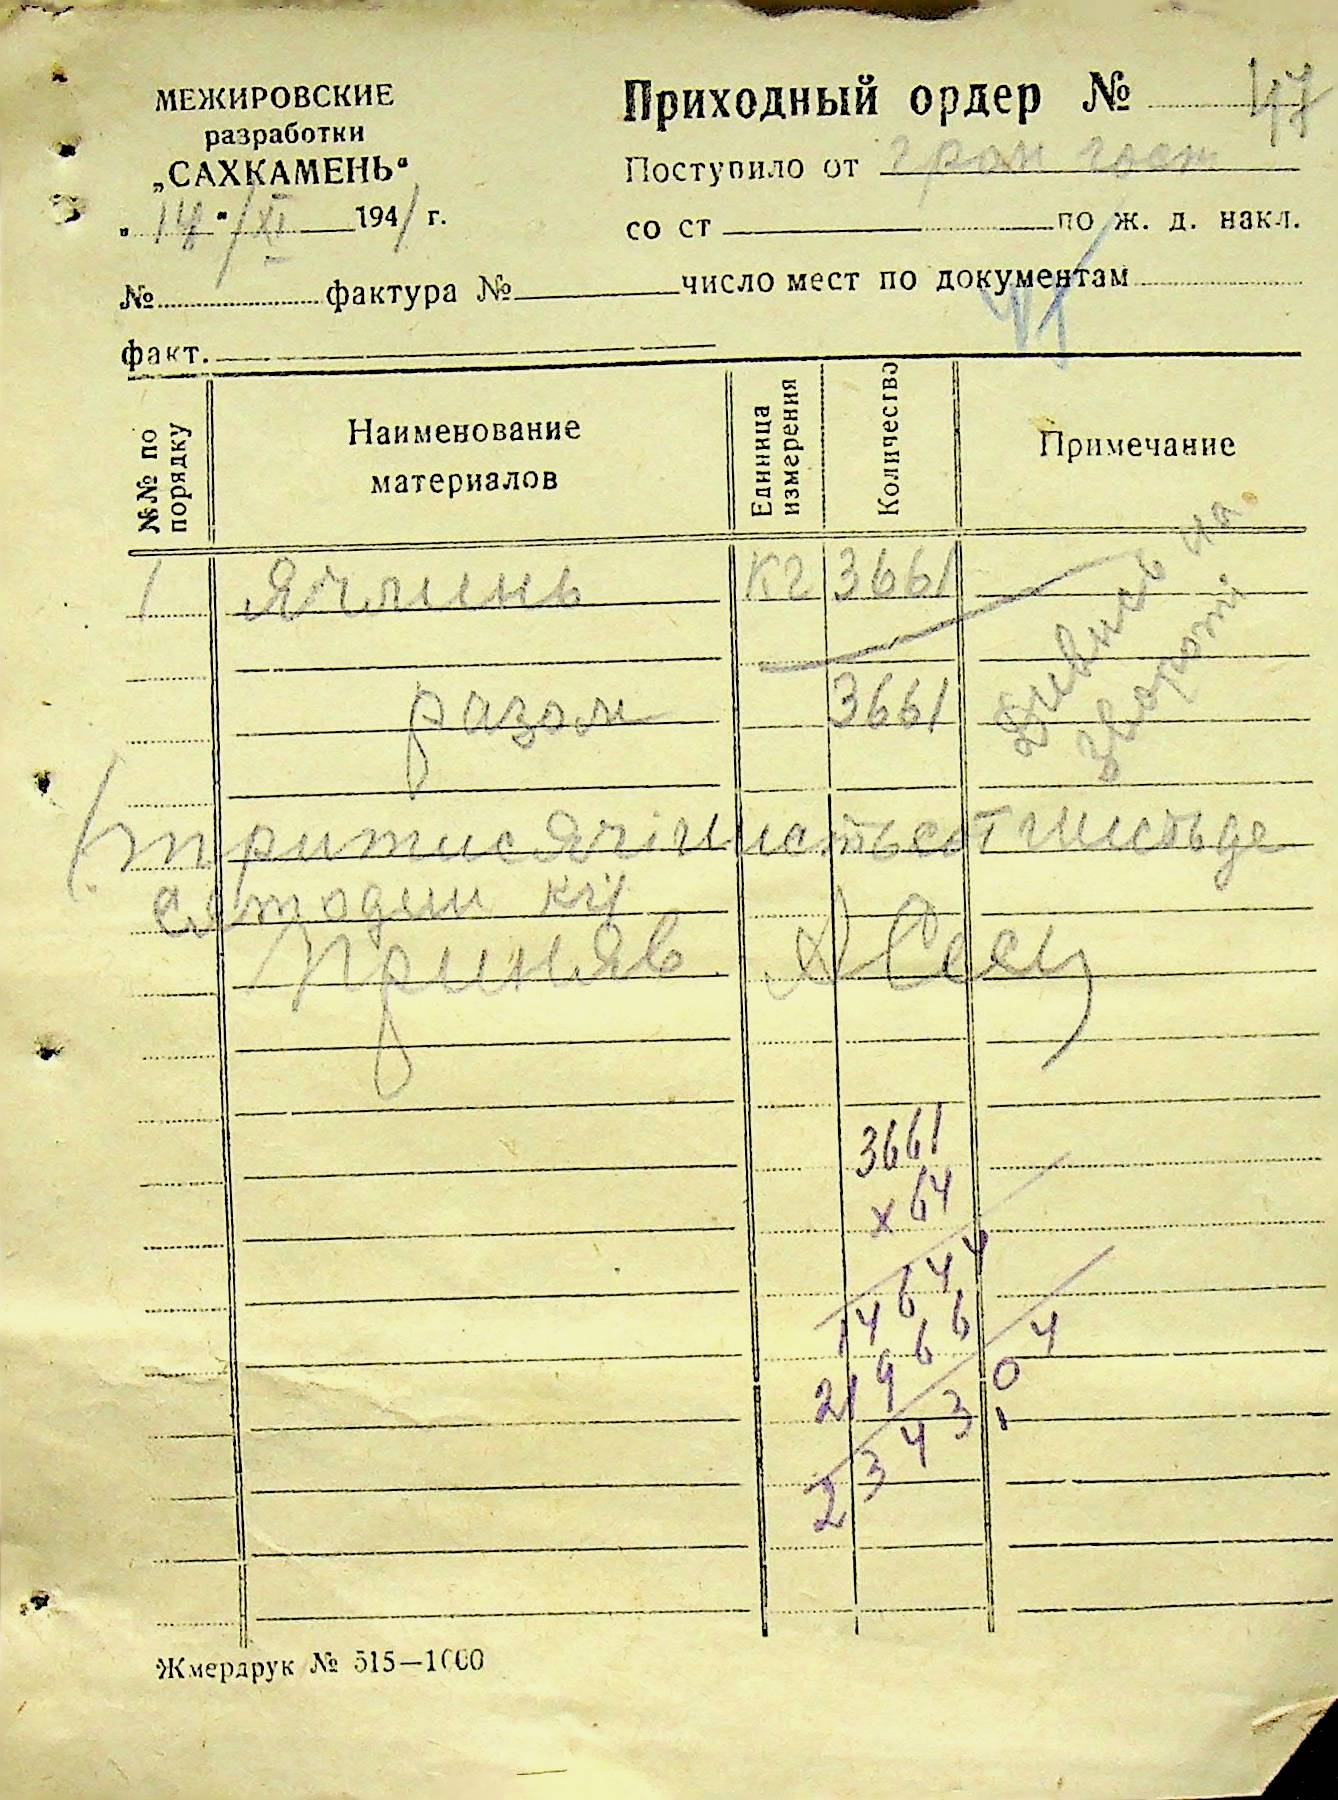 МЕЖИРОВСКИЕ
разработки
„САХКАМЕНЬ“
„14“/XI 1941 г.
Приходный ордер № 47
Поступило от гром госп
со ст по ж. д. накл.
№ фактура № число мест по документам
факт.
№№ по порядку
Наименование материалов
Единица измерения
Количество
Примечание
1 Ячмень кг 3661
разом 3661
Дивись на
звороті
/тритисячі шістьсот шістьде
сят один кг/
Приняв
3661
x 64
14644
21966
234304
Жмердрук № 515—1000